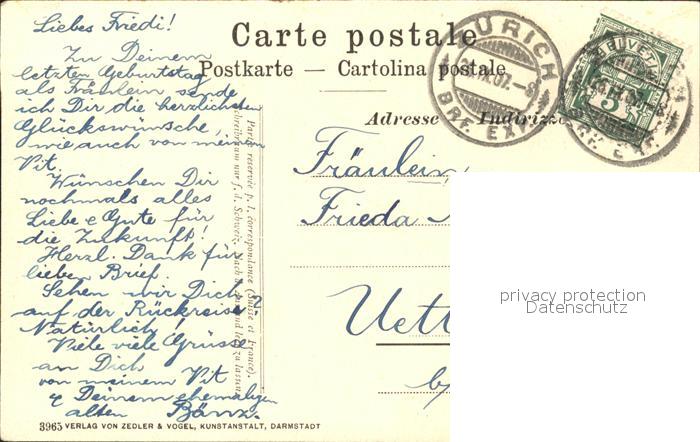 Liebes Friedi!
Zu Deinem
letzten Geburtstag
als Fräulein sende
ich Dir die herzlichsten
Glückswünsche,
wie auch von meinem
Vit.
Wünschen Dir
nochmals alles
Liebe & Gute für
die Zukunft!
Herzl. Dank für
lieben Brief.
Sehen wir Dich
auf der Rückreise?
Natürlich!
Viele viele Grüsse
an Dich
von meinem Vit
& Deinem ehemaligen
alten Bänz.
3965 VERLAG VON ZEDLER & VOGEL, KUNSTANSTALT, DARMSTADT
Partie réservée p. l. correspondance (Suisse et France).
Carte postale
Postkarte — Cartolina postale
Adresse Indirizzo
ZÜRICH
BRF. EXP.
HELVETIA
5
BRF. EXP.
Fräulein
Frieda
Uett
privacy protection
Datenschutz